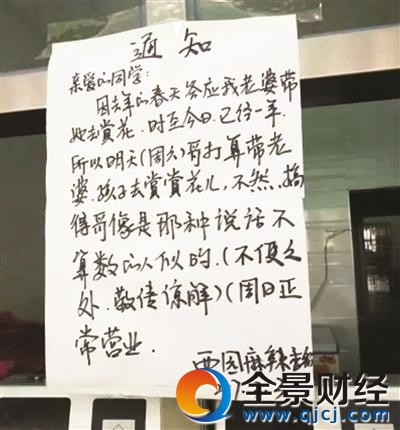 通知
亲爱的同学:
因去年的春天答应我老婆带
她去赏花.时至今日.已经一年.
所以明天(周六)哥打算带老
婆.孩子去赏赏花儿,不然,搞
得哥像是那种说话不
算数的人似的.(不便之
处.敬请谅解)(周日正
常营业.
西园麻辣
全景财经
www.qjcj.com